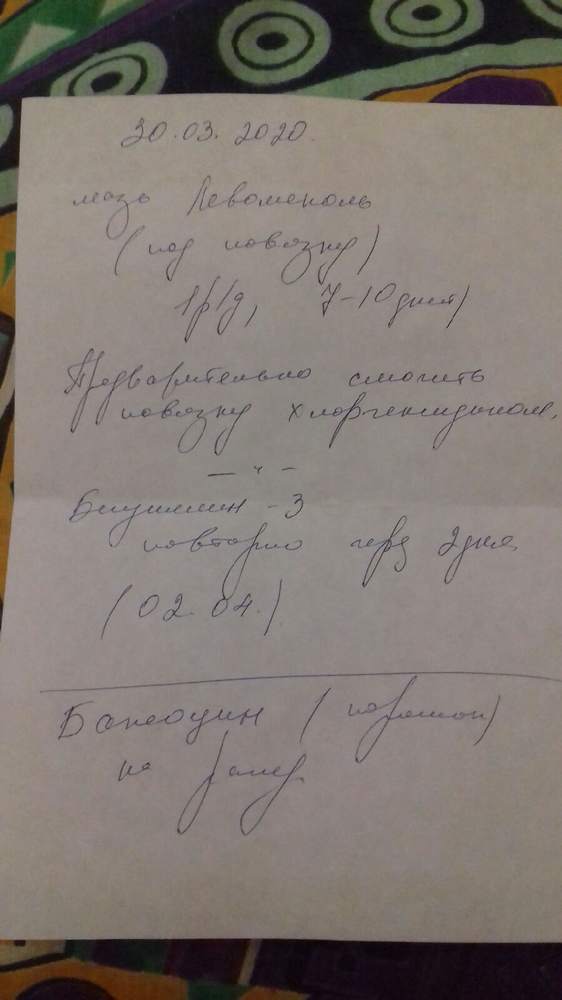 30.03.2020.
мазь Левомеколь
(под повязку)
1р/д, 7-10 дней)
Предварительно смочить
повязку хлоргексидином.
— " —
Бициллин-3
повторно через 2 дня
(02.04.)
Банеоцин (порошок)
на рану.